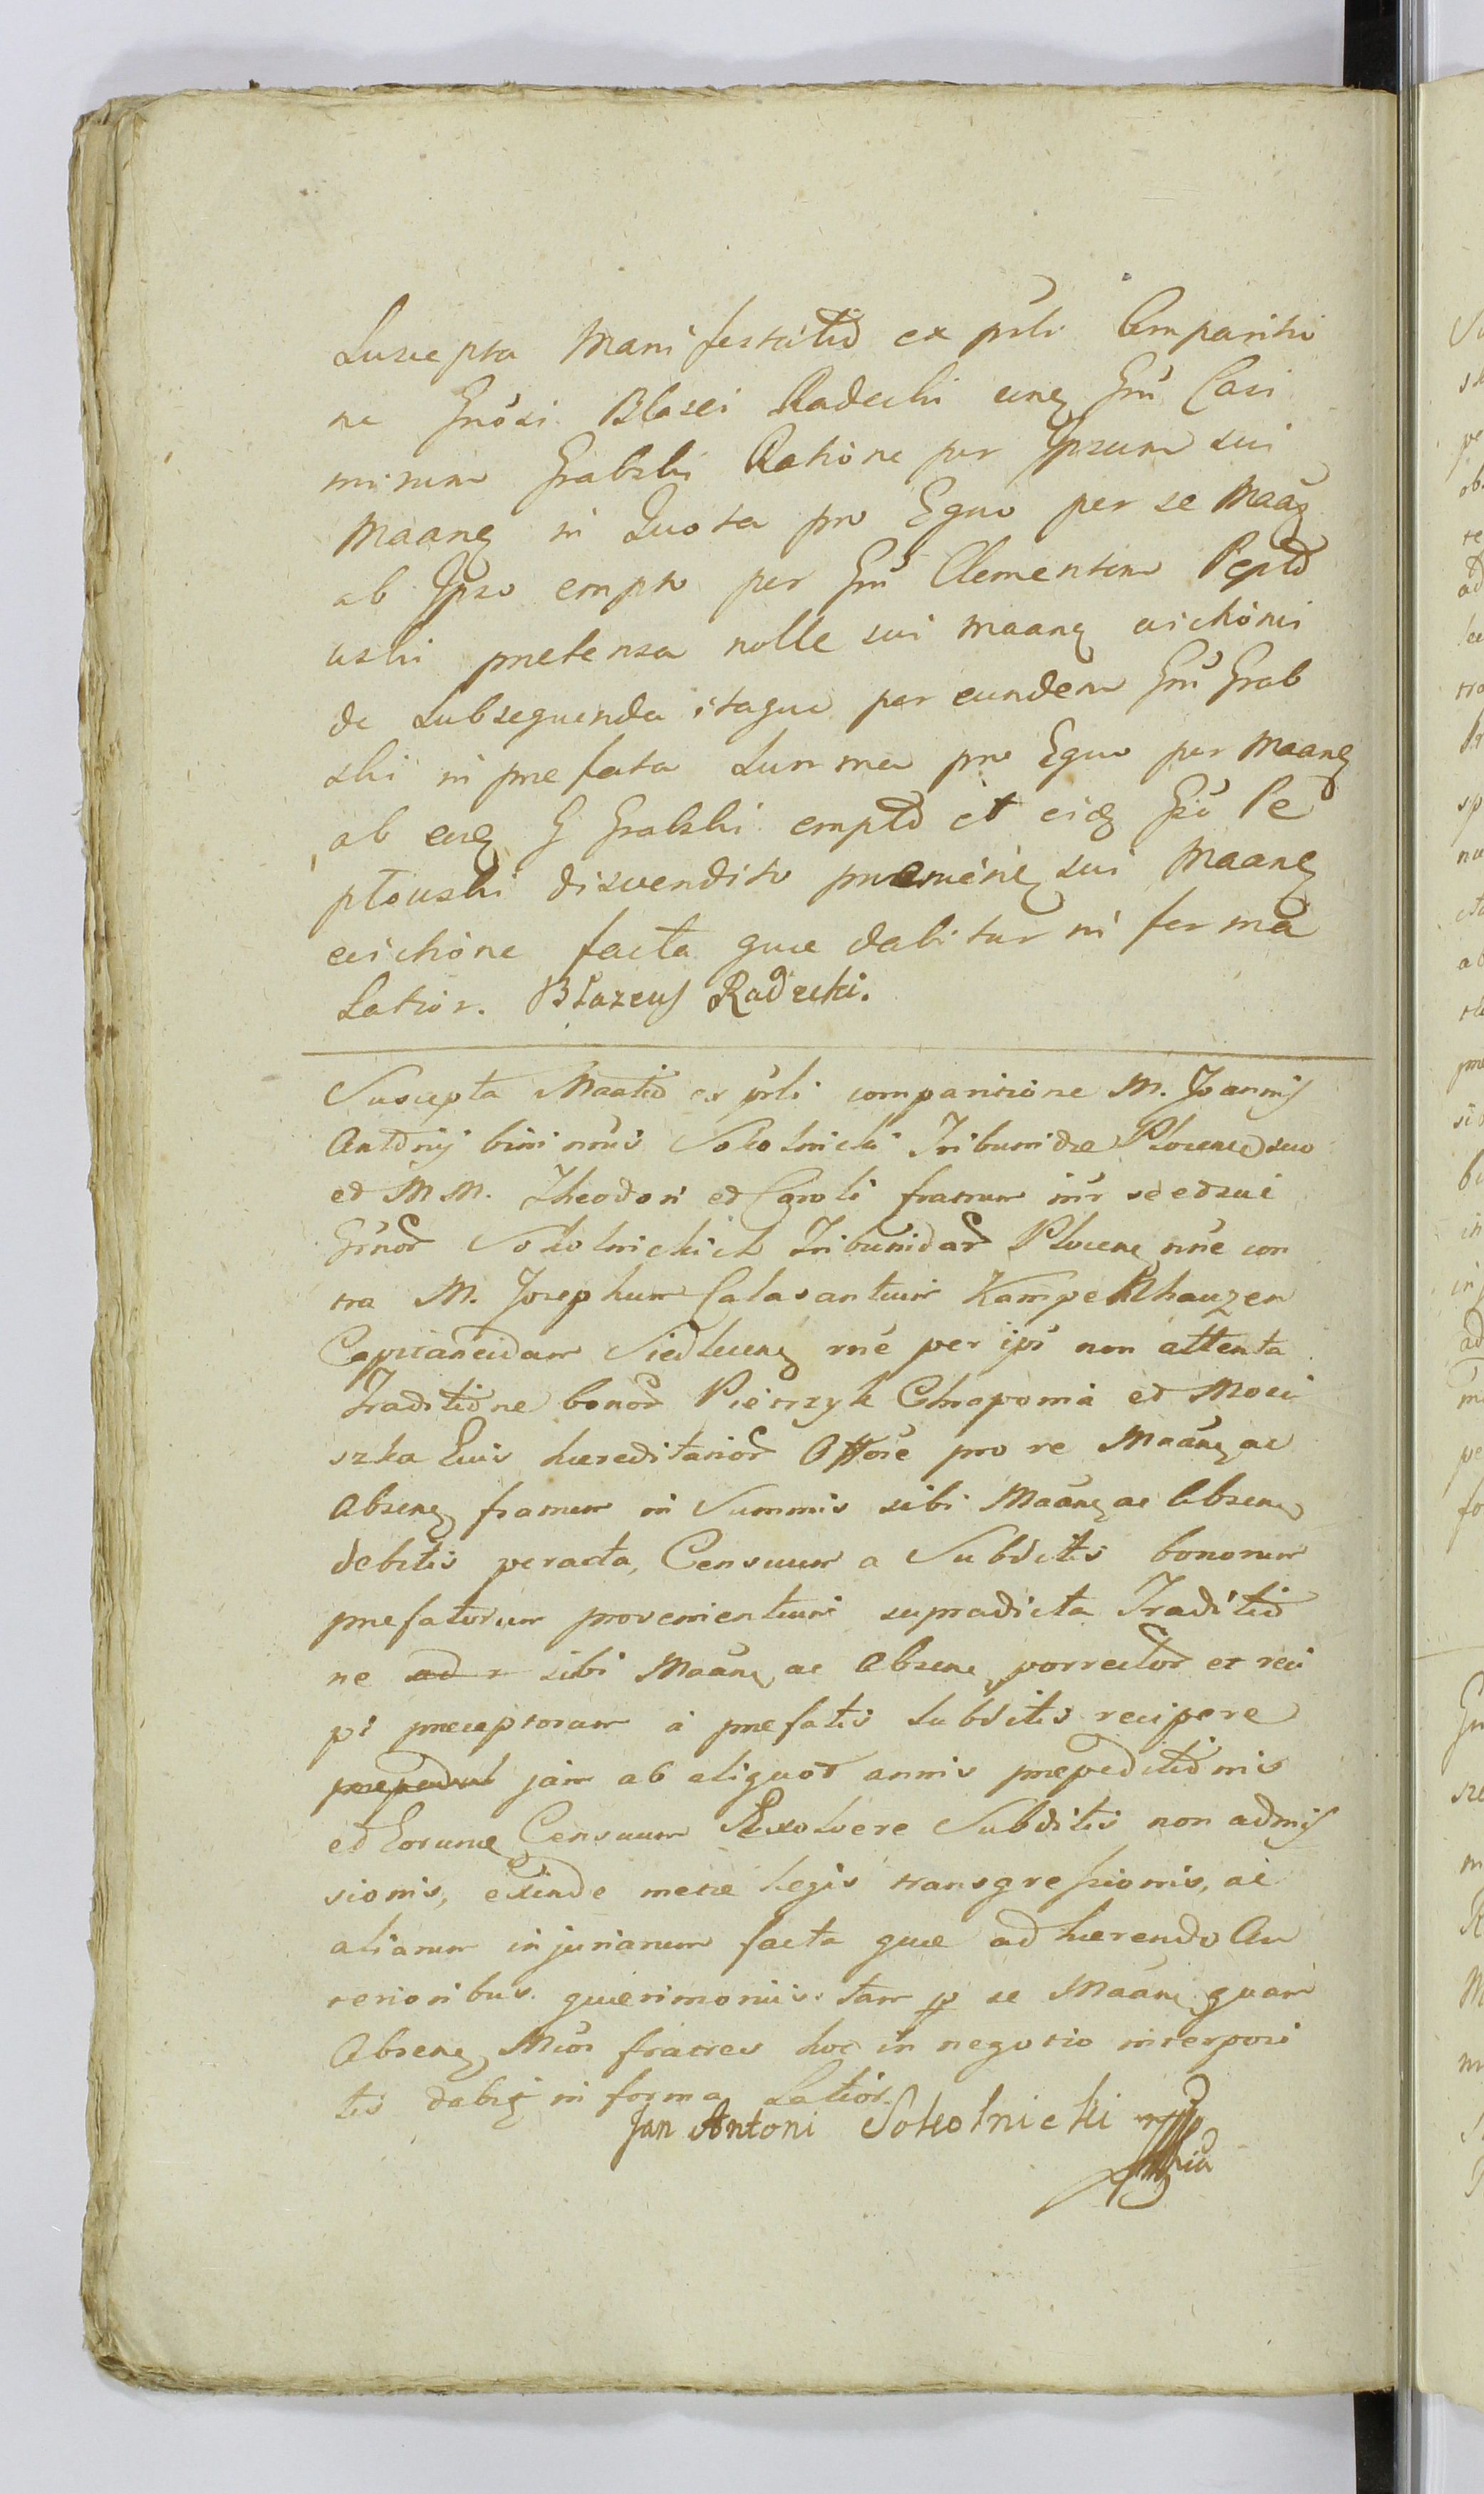 Suscepta Manifestatio ex prli Compariti
ne Gnosi Blasei Radecki cung Gm Casi
mirum Grabski Ratione per Ipsum sui
Maang in Quota pro Equo per se Maag
ab Ipso empto per Gm Clementem Pepto
wski pretensa nolle sui maang evictioni
de Subsequenda itaque per eundem Gm Grab
ski in prefata Summa pro Equo per Maang
ab eug G Grabski empto et eidg Gso Pe
ptowski disvendito pro sui Maang
evictione facta quæ dabitur in forma
Latior. Blazeus Radecki.
Suscepta Maatio ex prli comparitione M. Joannis
Antonij bini nmis Sokolnicki Tribunidæ Plocens suo
et M M. Theodori et Caroli fratrum inr se et sui
Grnor Sokolnickich Tribunidar Plocens nne con
tra M. Josephum Calasantium Kampenhauzen
Capitaneidam Siedlecens rne per ips non attenta
Traditione bonor Pierzyk Chroponia et Moci
szka Eius hæreditarior Offore pro re Maang ac
Absens fratrum in Summis sibi Maang ac Absens
debitis peracta, Censuum a Subditis bonorum
prefatorum provenientium supradicta Traditio
ne ad r sibi Maang ac Absens porrector et reci
pi preceptorum a prefatis subditis recipere
jam ab aliquot annis præpeditionis
et Eorung Censuum Exolvere Subditis non admis
sionis, exinde metæ legis transgressionis, ac
aliarum injuriarum facta quæ adhærendo An
terioribus querimoniis tam p se Maang quam
Absens Mcos fratres hoc in negotio interposi
tis dabig in forma Latior.
Jan Antoni Sokolnicki